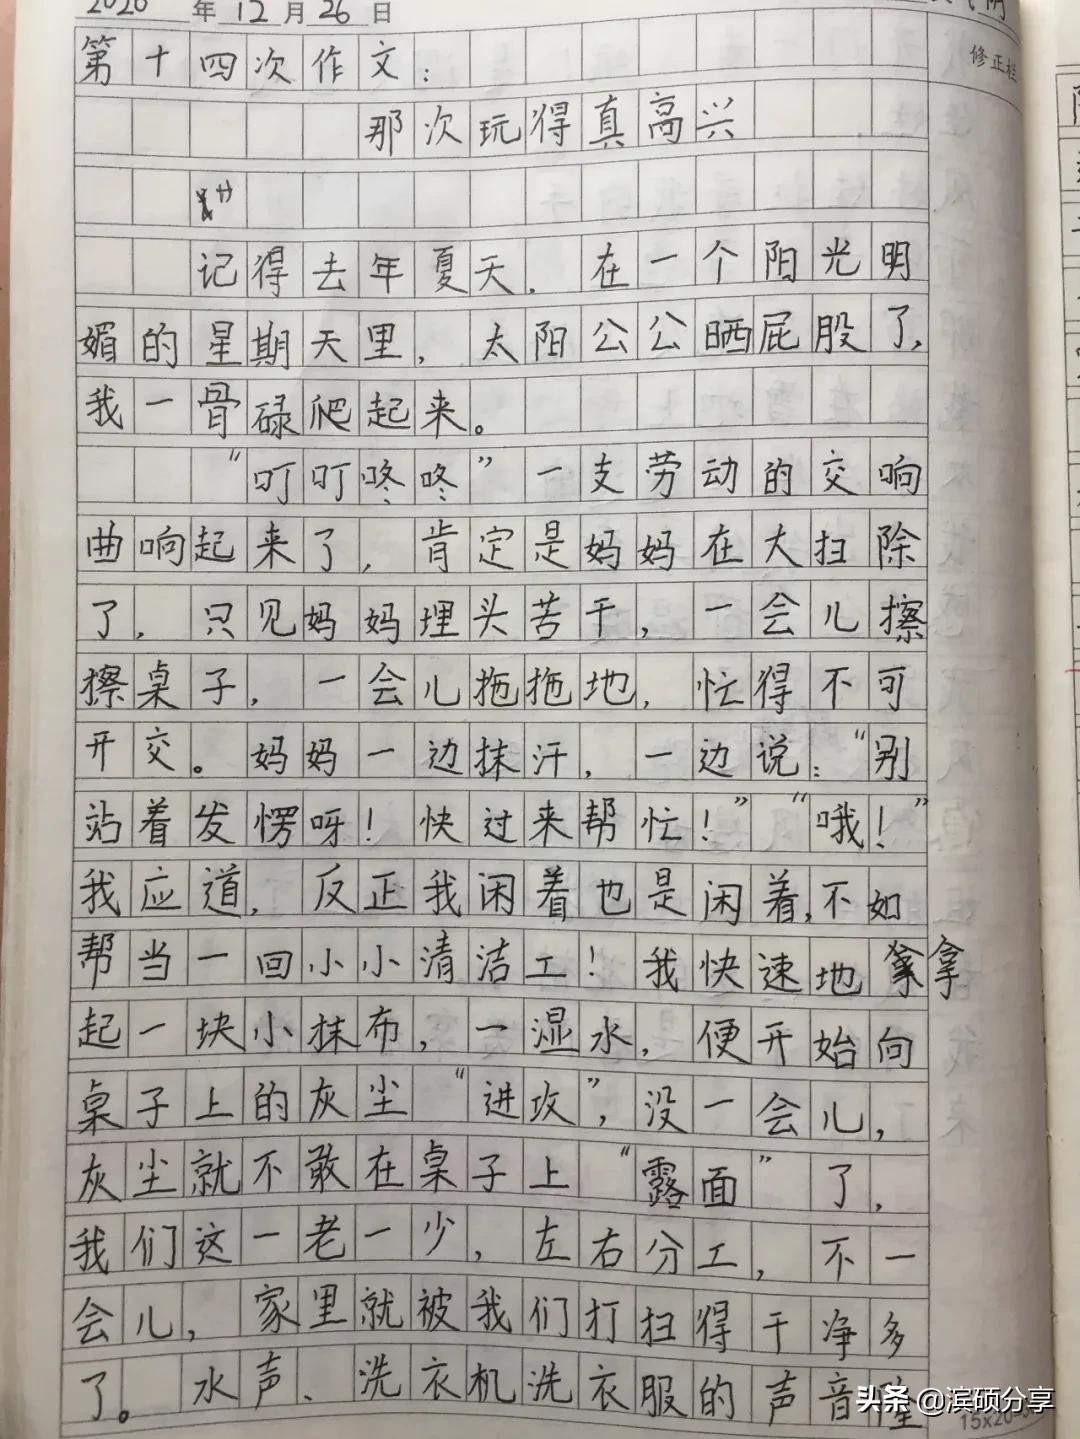 2020年12月26日
修正栏
第十四次作文：
那次玩得真高兴
记得去年夏天，在一个阳光明
媚的星期天里，太阳公公晒屁股了，
我一骨碌爬起来。
“叮叮咚咚”一支劳动的交响
曲响起来了，肯定是妈妈在大扫除
了，只见妈妈埋头苦干，一会儿擦
擦桌子，一会儿拖拖地，忙得不可
开交。妈妈一边抹汗，一边说：“别
站着发愣呀！快过来帮忙！”“哦！”
我应道，反正我闲着也是闲着，不如
帮当一回小小清洁工！我快速地拿
起一块小抹布，一湿水，便开始向
桌子上的灰尘“进攻”，没一会儿，
灰尘就不敢在桌子上“露面”了，
我们这一老一少，左右分工，不一
会儿，家里就被我们打扫得干净多
了。水声、洗衣机洗衣服的声音隆
头条@滨硕分享